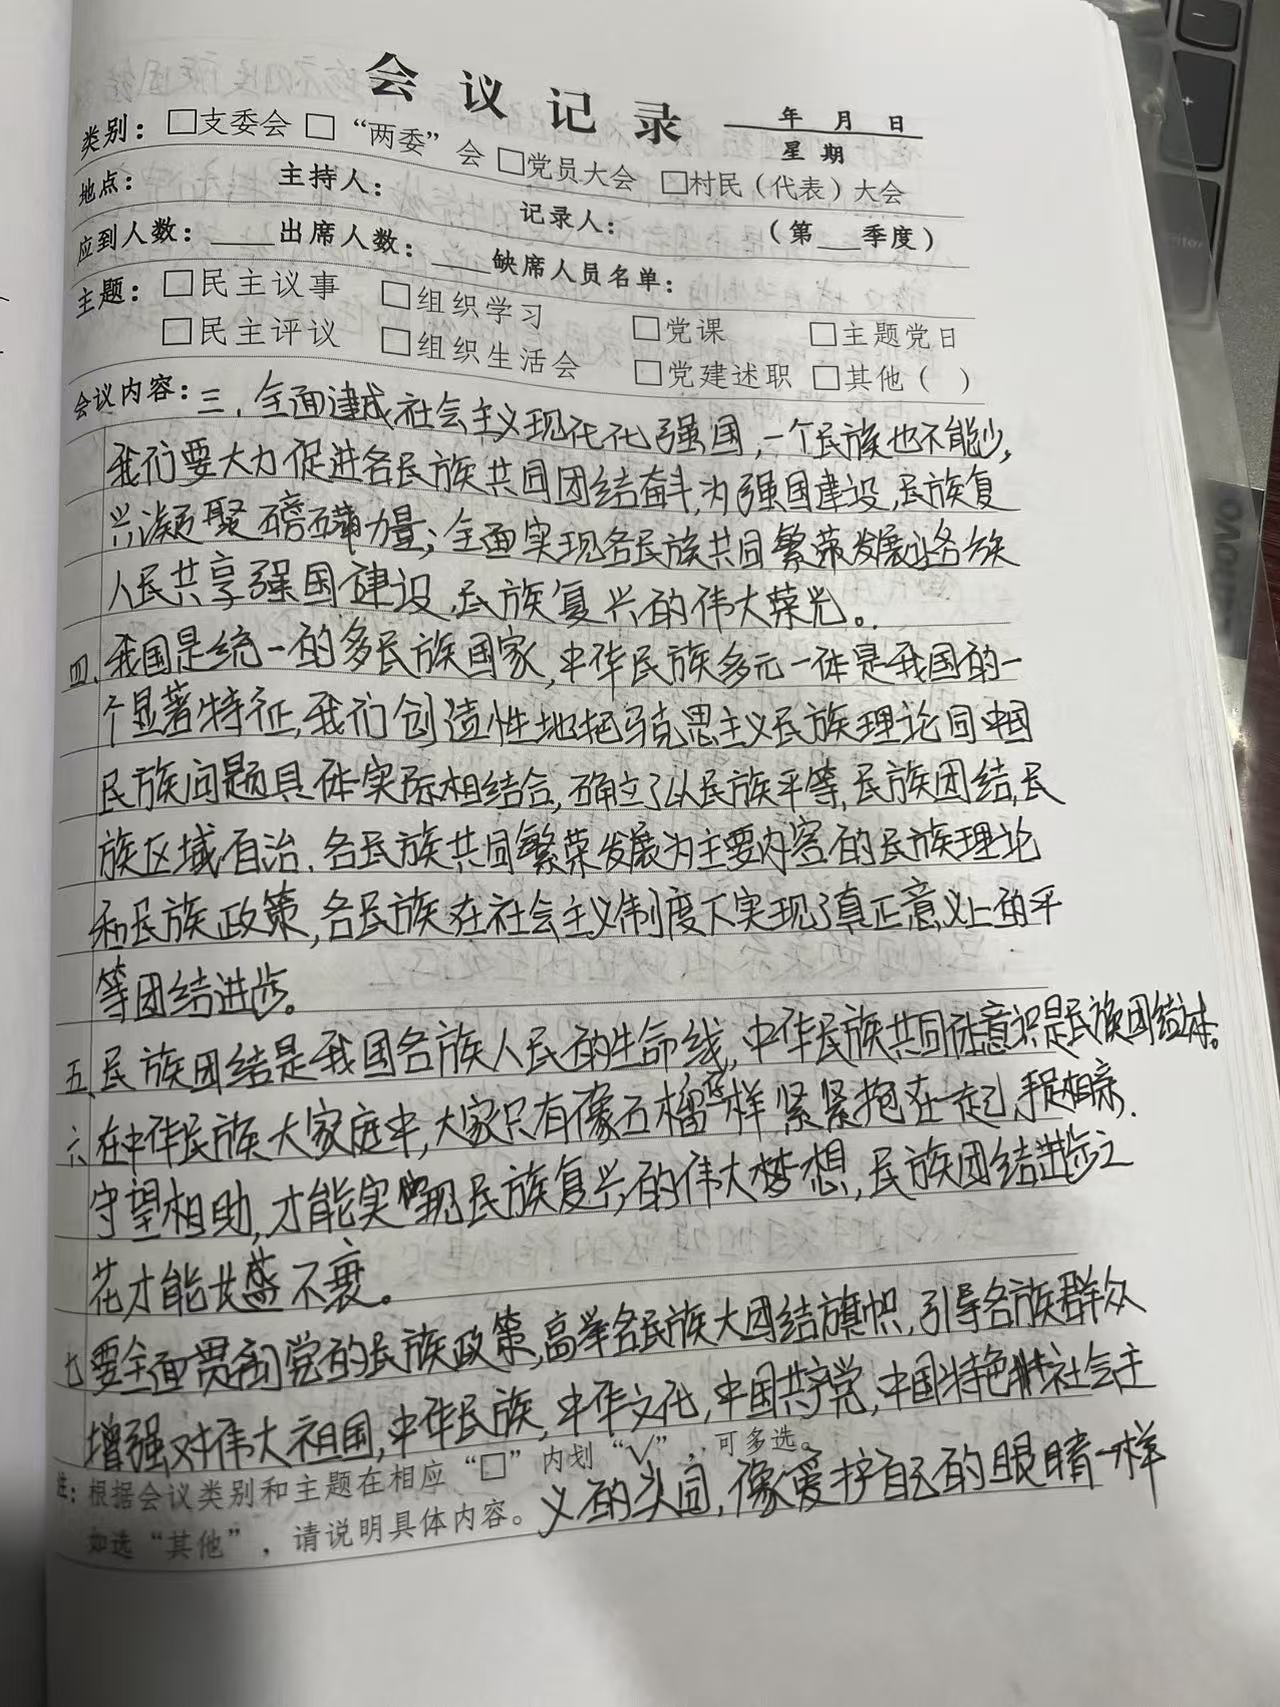 会议记录
年 月 日
星期
类别：□支委会 □“两委”会 □党员大会 □村民（代表）大会
地点： 主持人： 记录人： （第___季度）
应到人数：____出席人数：____缺席人员名单：
主题：□民主议事 □组织学习 □党课 □主题党日
□民主评议 □组织生活会 □党建述职 □其他（ ）
会议内容：三、全面建成社会主义现代化强国，一个民族也不能少，
我们要大力促进各民族共同团结奋斗，为强国建设，民族复
兴凝聚磅礴力量；全面实现各民族共同繁荣发展让各族
人民共享强国建设，民族复兴的伟大荣光。
四、我国是统一的多民族国家，中华民族多元一体是我国的一
个显著特征，我们创造性地把马克思主义民族理论同中国
民族问题具体实际相结合，确立了以民族平等，民族团结，民
族区域自治、各民族共同繁荣发展为主要内容的民族理论
和民族政策，各民族在社会主义制度下实现了真正意义上的平
等团结进步。
五、民族团结是我国各族人民的生命线，中华民族共同体意识是民族团结之本。
六、在中华民族大家庭中，大家只有像石榴籽一样紧紧抱在一起，手足相亲、
守望相助，才能实现民族复兴的伟大梦想，民族团结进步之
花才能长盛不衰。
七、要全面贯彻党的民族政策，高举各民族大团结旗帜，引导各族群众
增强对伟大祖国，中华民族，中华文化，中国共产党，中国特色社会主
注：根据会议类别和主题在相应“□”内划“√”，可多选。
义的认同，像爱护自己的眼睛一样
如选“其他”，请说明具体内容。